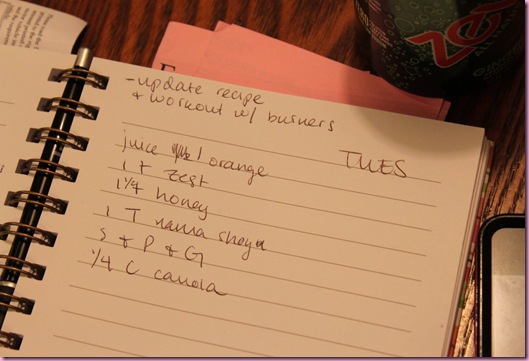 - update recipe
& workout w/ burners
TUES
juice 1 orange
1 t zest
1 1/4 honey
1 T nama shoyu
S & P & G
1/4 C canola
Ze